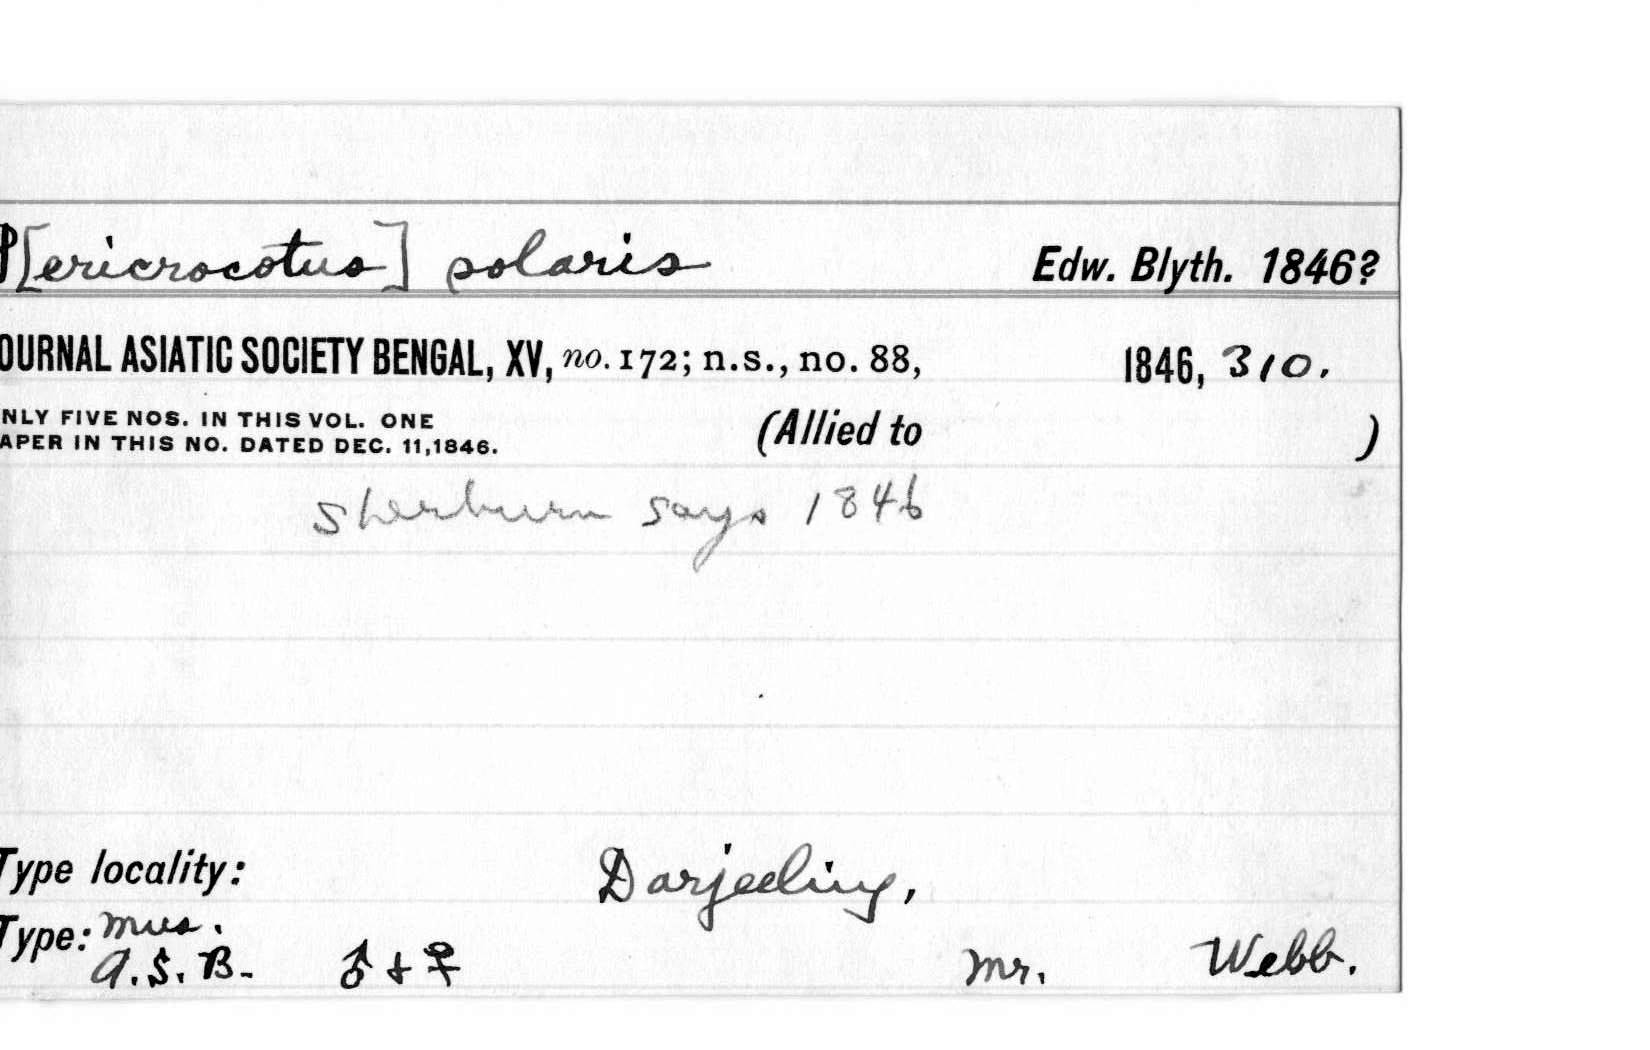 P[ericrocotus] polaris Edw. Blyth. 1846?
OURNAL ASIATIC SOCIETY BENGAL, XV, no. 172; n.s., no. 88, 1846, 310.
NLY FIVE NOS. IN THIS VOL. ONE
APER IN THIS NO. DATED DEC. 11,1846.
(Allied to )
Sherburn says 1846
Type locality: Darjeeling,
Type: Mus.
A.S.B. ♂ & ♀ Mr. Webb.